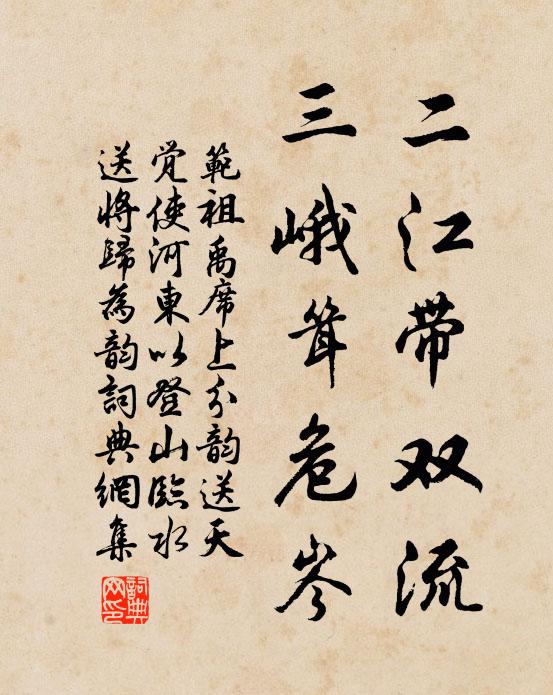 二江带双流
三峨耸危岑
範祖禹席上分韵送天
觉使河東以登山臨水
送將歸為韵詞典網集
詞典
网印